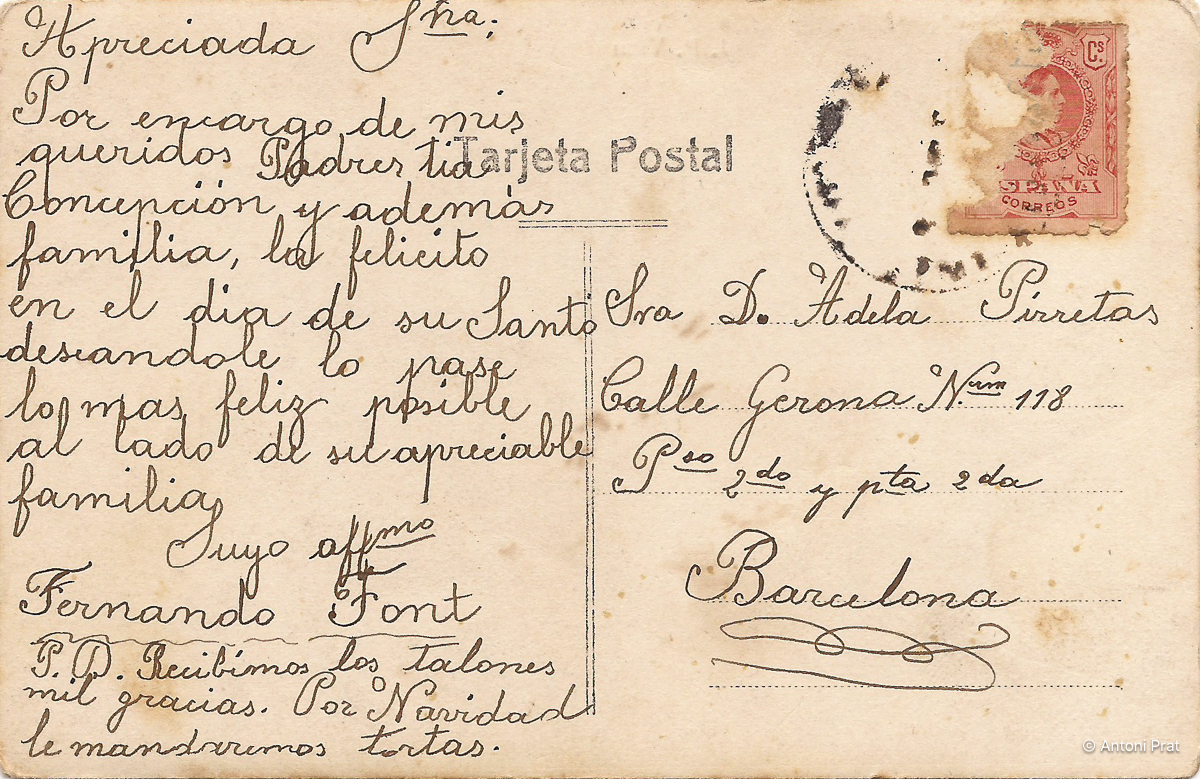 Apreciada Sña:
Por encargo de mis
queridos Padres tia
Concepción y además
familia, la felicito
en el dia de su Santo
deseandole lo pase
lo mas feliz posible
al lado de su apreciable
familia
Suyo affmo
Fernando Font
P.D. Recibimos los talones
mil gracias. Por Navidad
le mandaremos tortas.
Tarjeta Postal
Cs
SPAÑA
CORREOS
Sra D. Adela Pirretas
Calle Gerona Núm 118
Pso 2do y pta 2da
Barcelona
© Antoni Prat